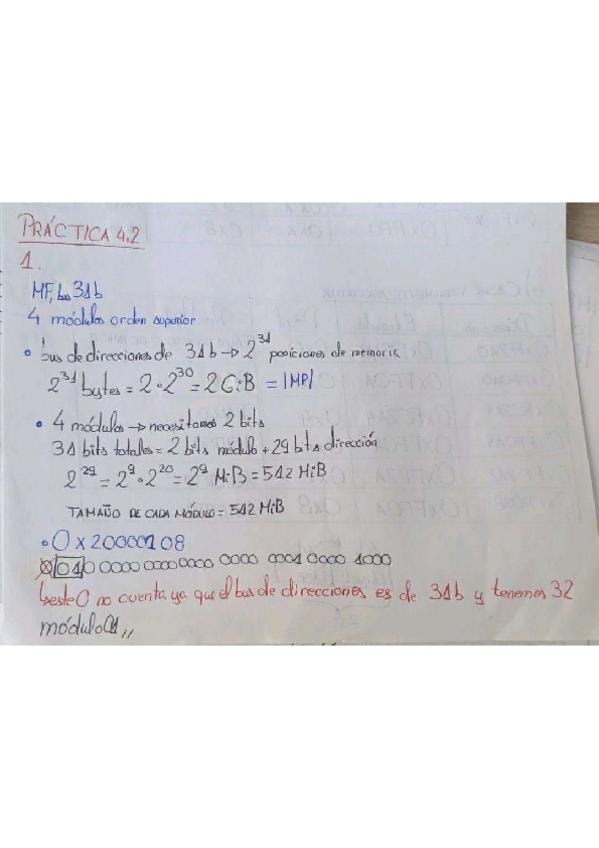 PRÁCTICA 4.2
1.
MP, bus 31b
4 módulos orden superior
• bus de direcciones de 31b → 2^31 posiciones de memoria
2^31 bytes = 2 · 2^30 = 2 GiB = |MP|
• 4 módulos → necesitamos 2 bits
31 bits totales = 2 bits módulo + 29 bits dirección
2^29 = 2^9 · 2^20 = 2^9 MiB = 512 MiB
TAMAÑO DE CADA MÓDULO = 512 MiB
• 0x20000108
0010 0000 0000 0000 0000 0001 0000 1000
↳ este 0 no cuenta ya que el bus de direcciones es de 31b y tenemos 32
módulo 01,,